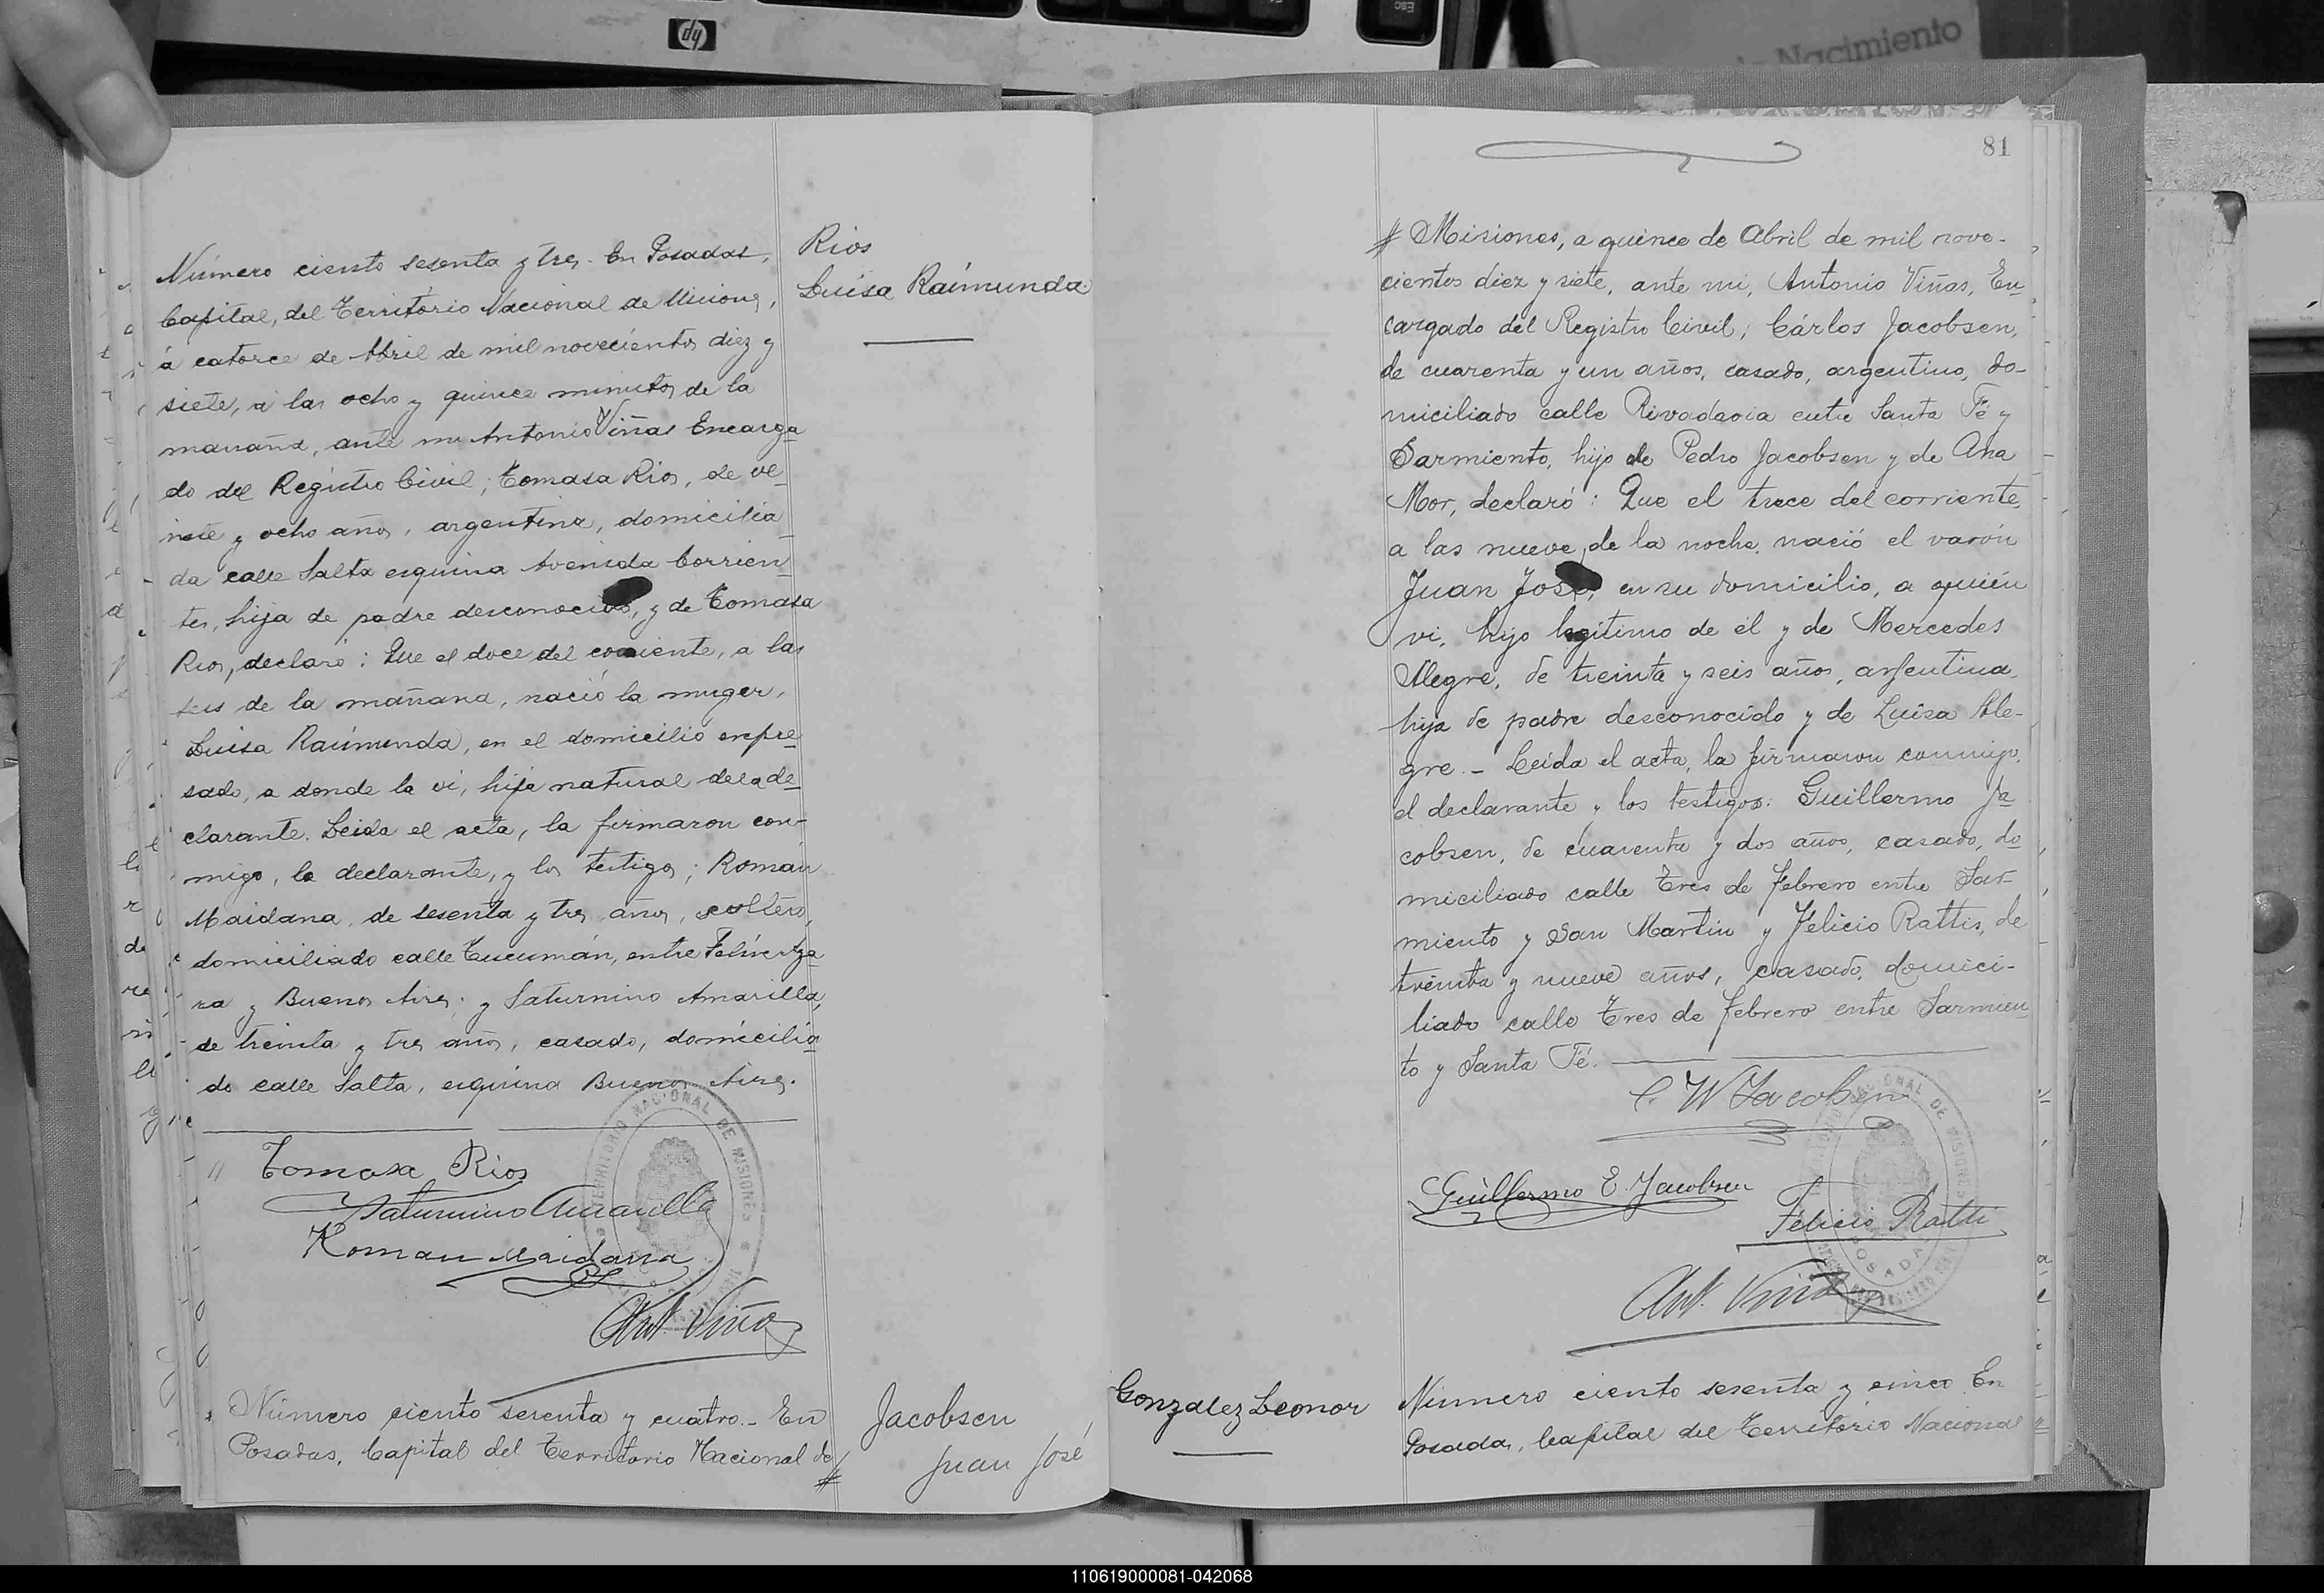 hp
ESC
de Nacimiento
Número ciento sesenta y tres. En Posadas,
Capital, del Território Nacional de Misiones,
á catorce de Abril de mil novecientos diez y
siete, a las ocho y quince minutos de la
mañana, ante mi Antonio Viñas Encarga
do del Registro Civil; Tomasa Rios, de ve
inte y ocho años, argentina, domicilia
da calle Salta esquina Avenida Corrien
tes, hija de padre desconocido, y de Tomasa
Rios, declaró: Que el doce del corriente, a las
seis de la mañana, nació la muger,
Luisa Raimunda, en el domicilio expre
sado, a donde la vi, hija natural de la de
clarante. Leida el acta, la firmaron con-
migo, la declarante, y los testigos; Román
Maidana, de sesenta y tres años, soltero,
domiciliado calle Tucumán, entre Felix Aza
ra y Buenos Aires; y Saturnino Amarilla,
de treinta y tres años, casado, domicilia
do calle Salta, esquina Buenos Aires.
Tomasa Rios
Saturnino Amarilla
Roman Maidana
Ant. Viñas
Número ciento sesenta y cuatro.- En
Posadas, Capital del Territorio Nacional de
#
Rios
Luisa Raimunda
Jacobsen
Juan José
81
# Misiones, a quince de Abril de mil nove-
cientos diez y siete, ante mi, Antonio Viñas, En
cargado del Registro Civil; Cárlos Jacobsen,
de cuarenta y un años, casado, argentino, do-
miciliado calle Rivadavia entre Santa Fé y
Sarmiento, hijo de Pedro Jacobsen y de Ana
Mor, declaró: Que el trece del corriente,
a las nueve de la noche, nació el varón
Juan José, en su domicilio, a quién
vi, hijo legitimo de él y de Mercedes
Alegre, de treinta y seis años, argentina,
hija de padre desconocido y de Luisa Ale-
gre.- Leida el acta, la firmaron conmigo,
el declarante y los testigos: Guillermo Ja
cobsen, de cuarenta y dos años, casado, do
miciliado calle Tres de febrero entre Sar-
miento y San Martin y Felicio Rattis, de
treinta y nueve años, casado, domici-
liado calle Tres de febrero entre Sarmien
to y Santa Fé.
C. W Jacobsen
Guillermo E. Jacobsen
Felicio Ratti
Ant. Viñas
TERRITORIO NACIONAL DE MISIONES
POSADAS
Gonzalez Leonor
Número ciento sesenta y cinco En
Posadas, Capital del Território Nacional
110619000081-042068